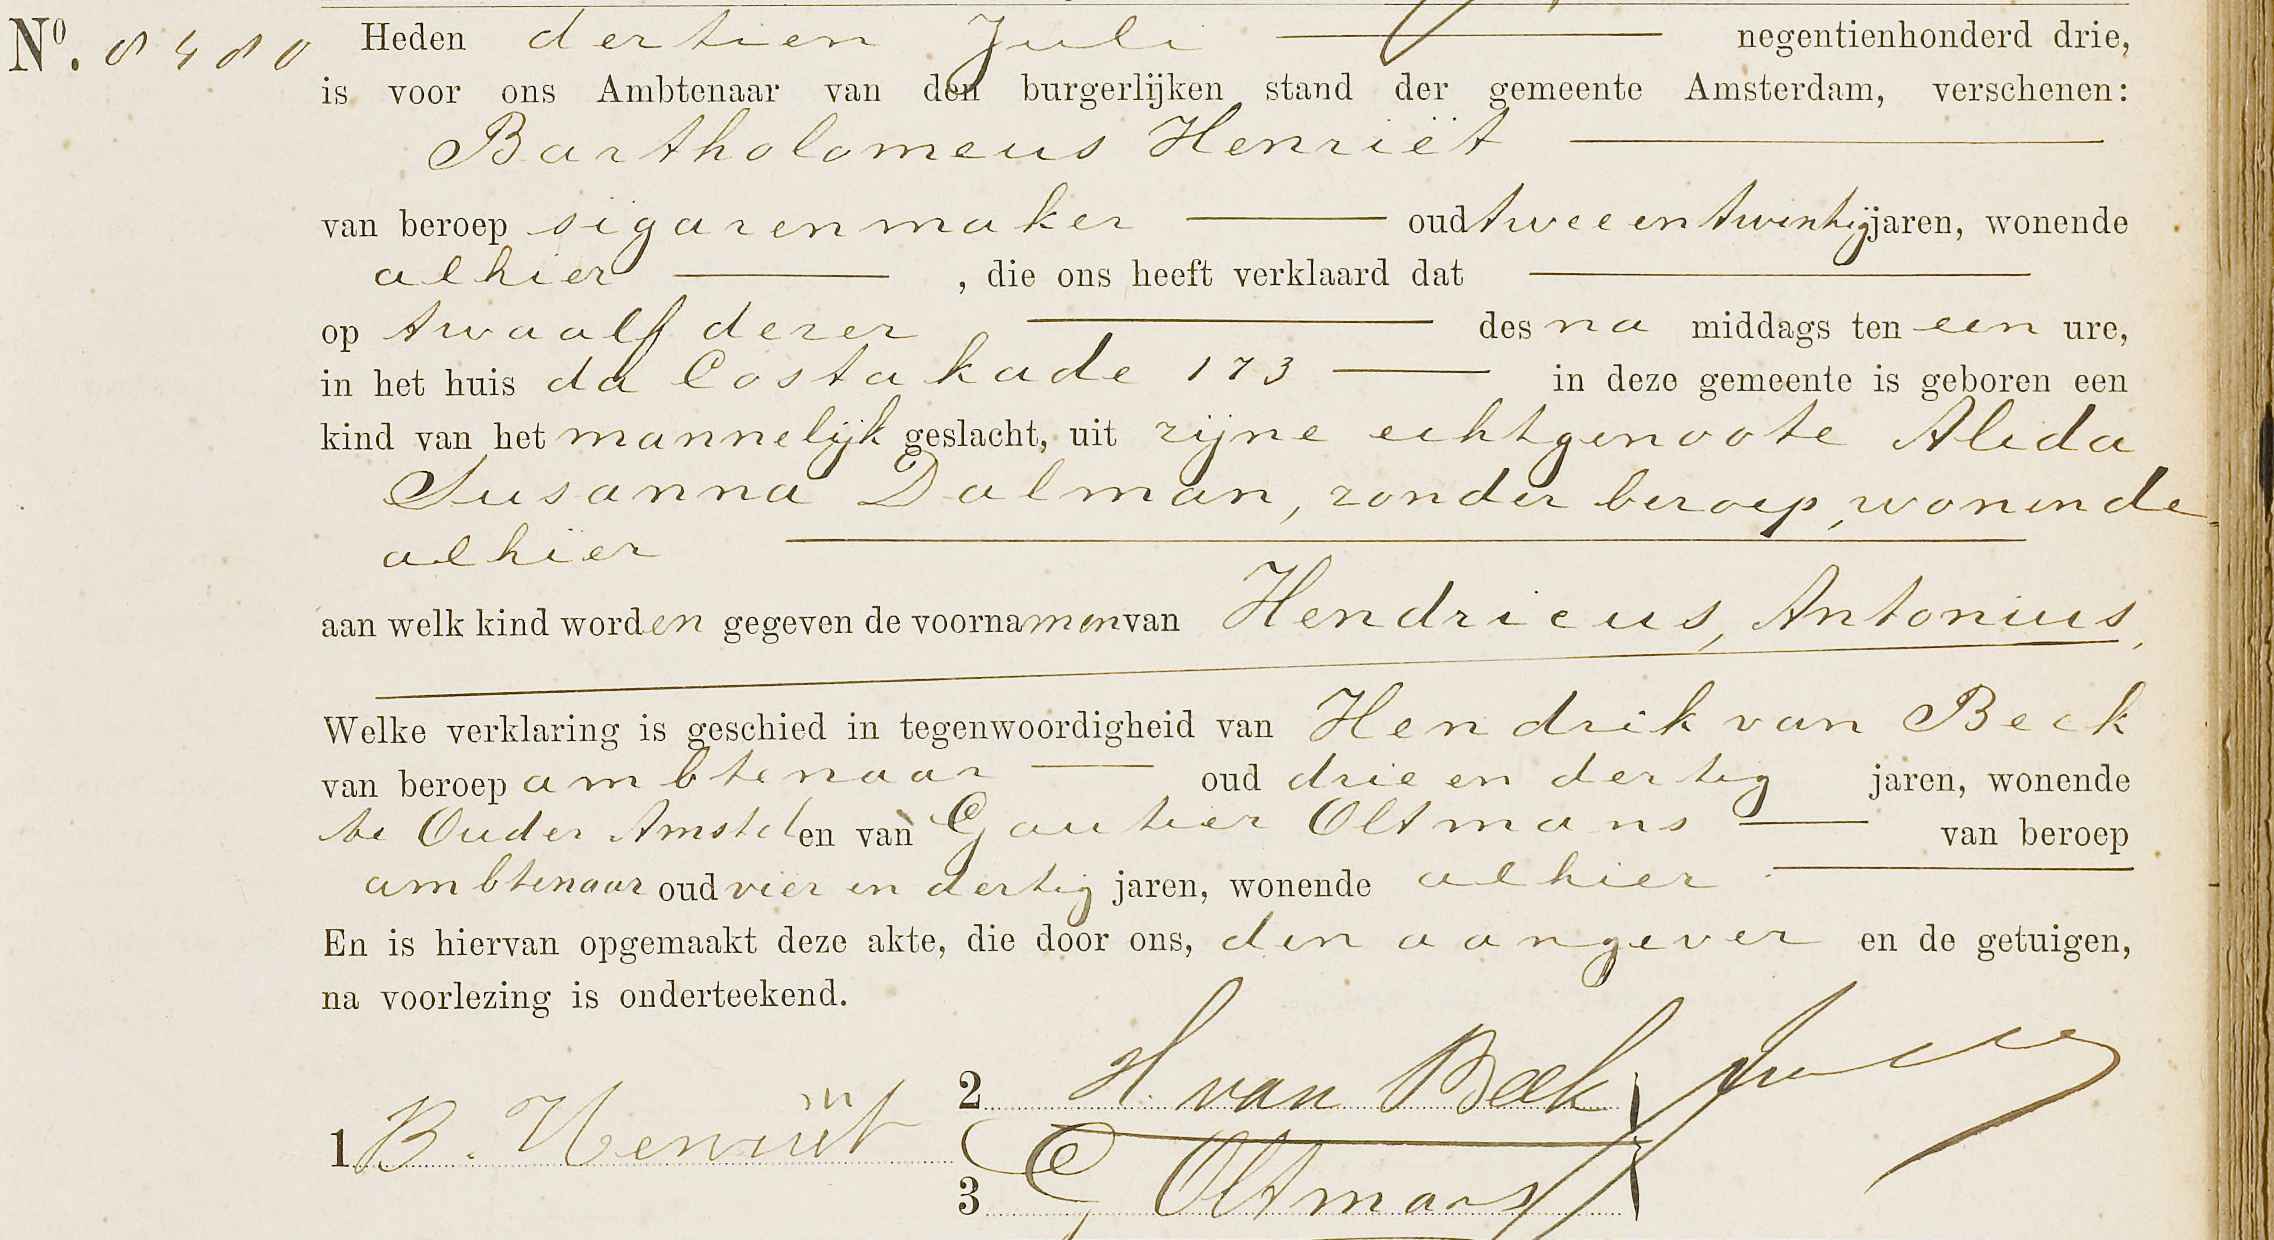 No. 8480 Heden dertien Juli negentienhonderd drie,
is voor ons Ambtenaar van den burgerlijken stand der gemeente Amsterdam, verschenen:
Bartholomeus Henriët
van beroep sigarenmaker oud twee en twintig jaren, wonende
alhier , die ons heeft verklaard dat
op twaalf dezer des na middags ten een ure,
in het huis da Costakade 173 in deze gemeente is geboren een
kind van het mannelijk geslacht, uit zijne echtgenoote Alida
Susanna Dalman, zonder beroep, wonende
alhier
aan welk kind worden gegeven de voornamen van Hendricus, Antonius,
Welke verklaring is geschied in tegenwoordigheid van Hendrik van Beek
van beroep ambtenaar oud drie en dertig jaren, wonende
te Ouder Amstel en van Gautier Oltmans van beroep
ambtenaar oud vier en dertig jaren, wonende alhier
En is hiervan opgemaakt deze akte, die door ons, den aangever en de getuigen,
na voorlezing is onderteekend.
2 H. van Beek
1 B. Henriët
3 G Oltmans